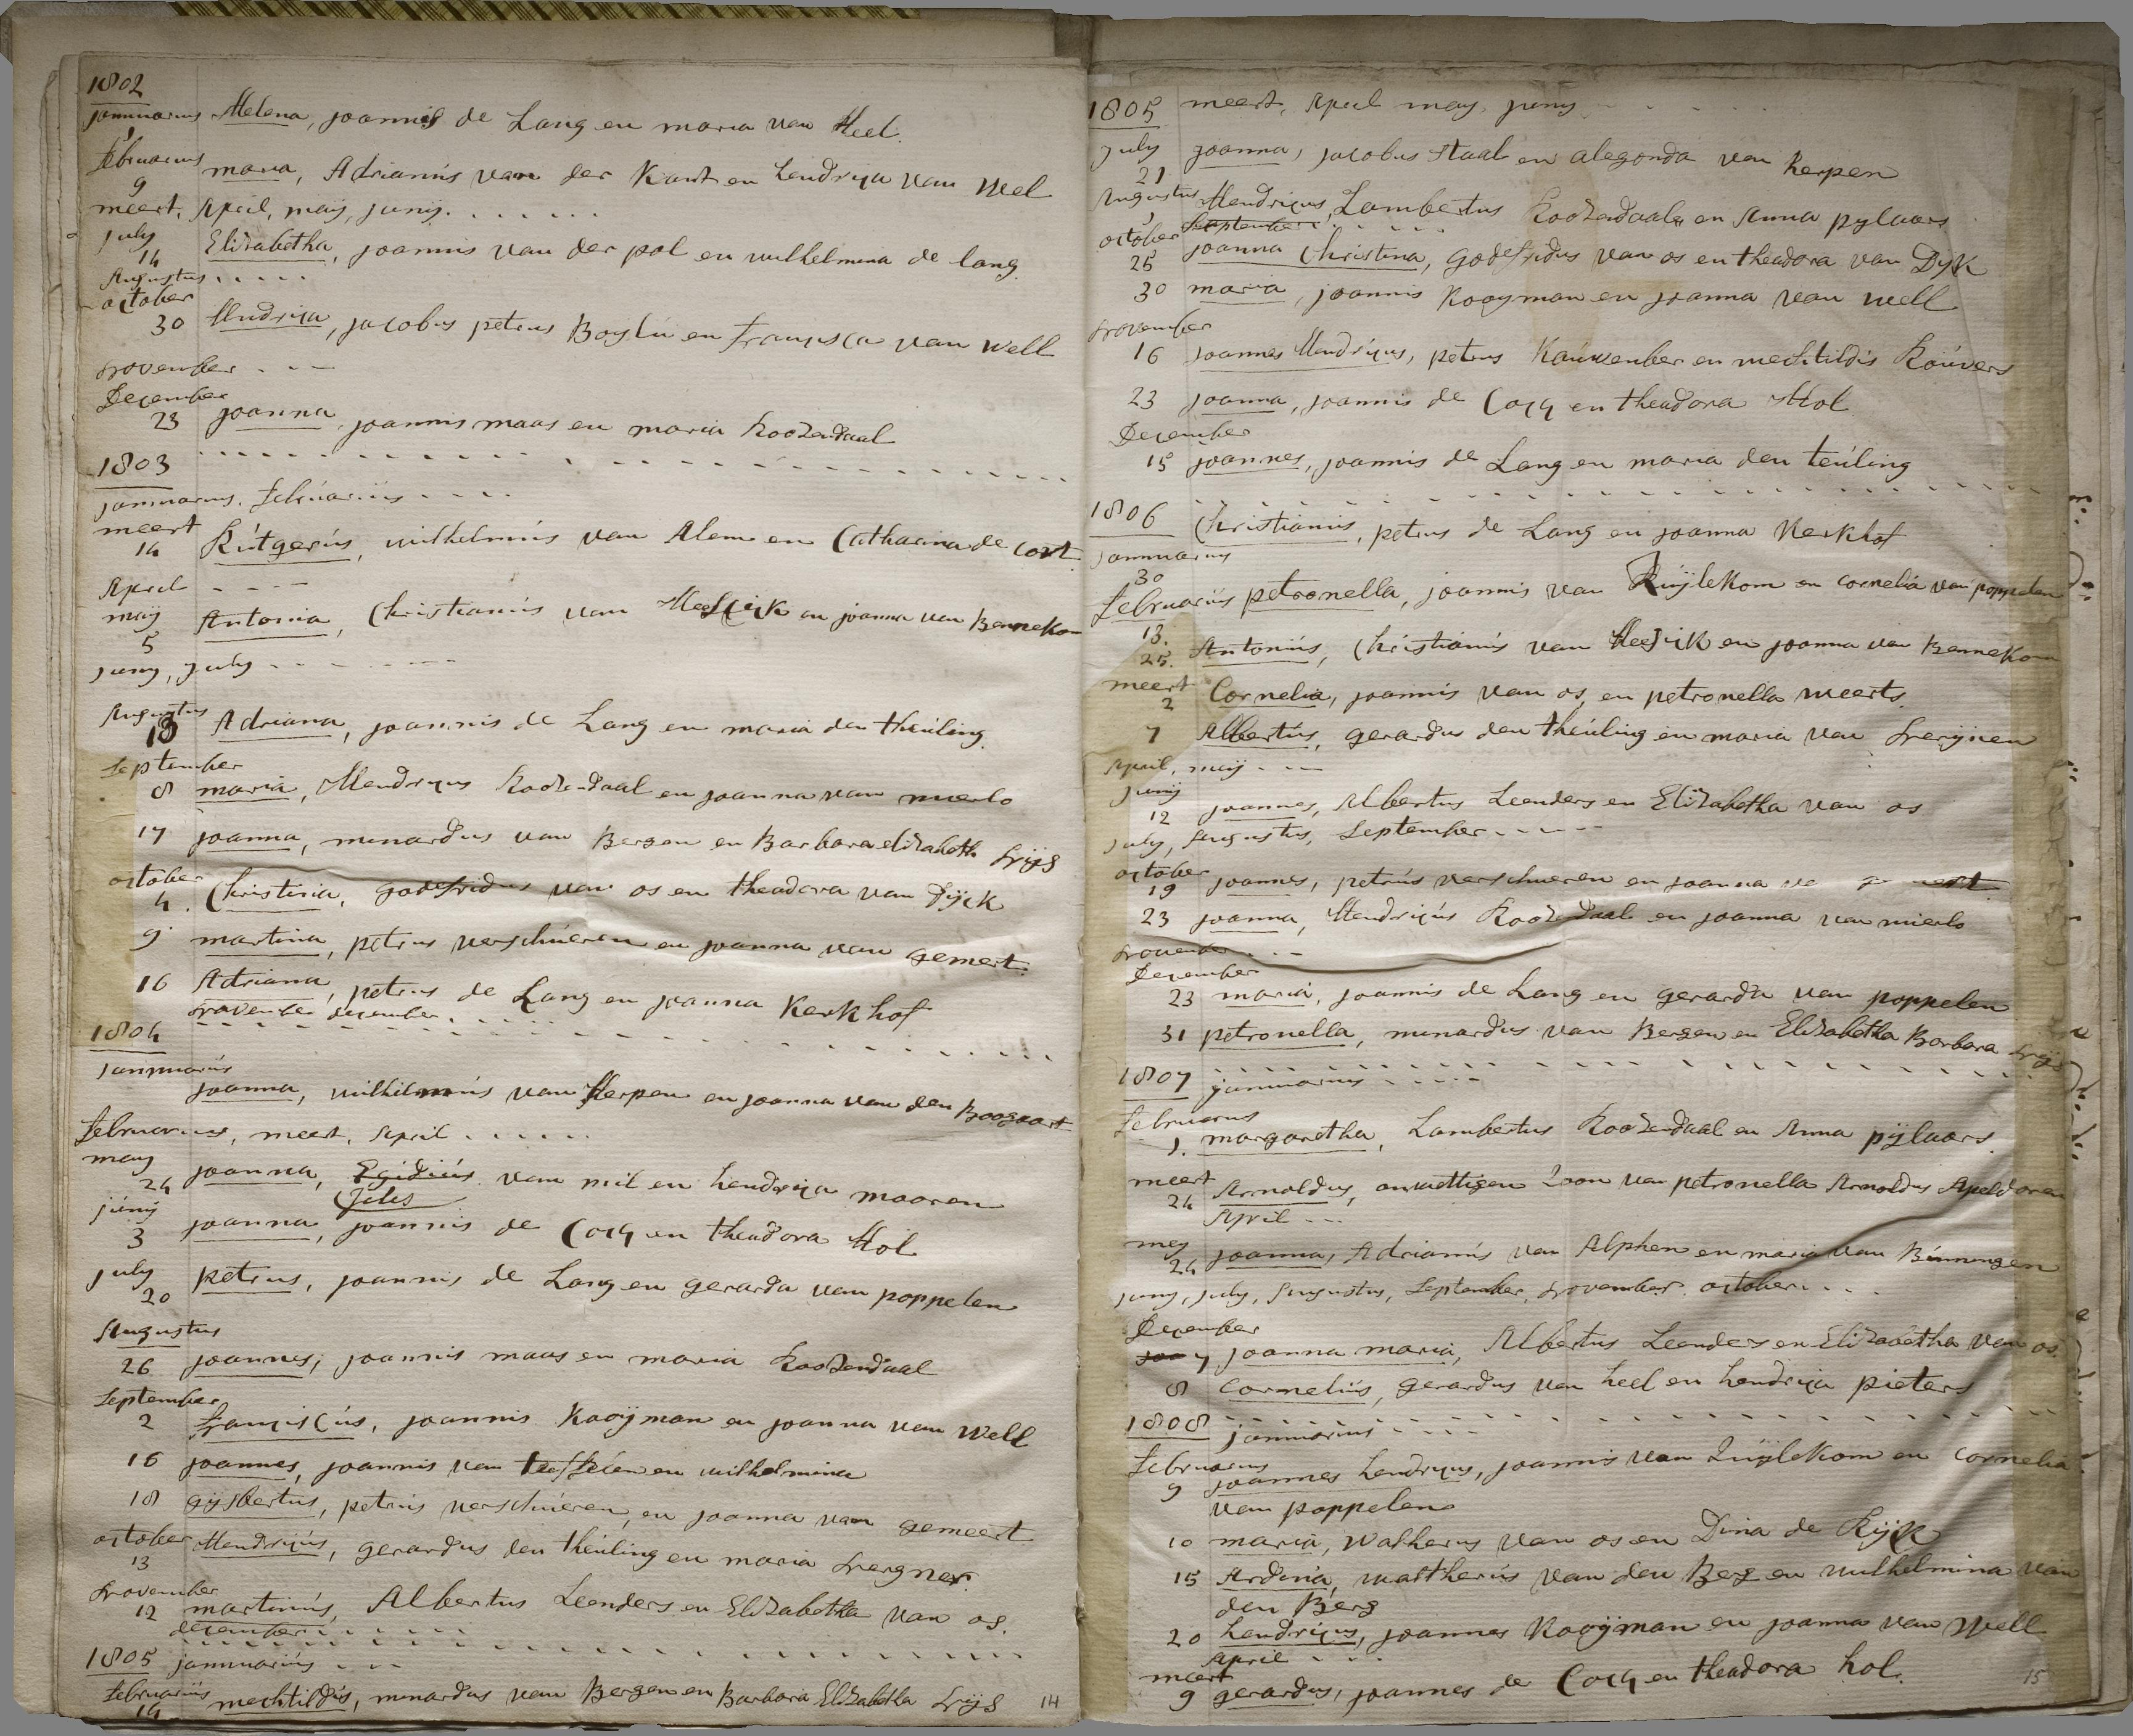 1802
januarius 1 Helena, joannis de Lang en maria van Heel
februarius 9 maria, Adrianus van der Kant en hendrica van Wel
meert, April, maij, junij. . . . . . .
july 14 Elisabetha, joannis van der pol en wilhelmina de lang.
Augustus . . . . .
october
30 Hendrica, jacobus petrus en francisca van Well
november . . .
December
23 joanna, joannis maas en maria Roozendaal
1803
januarius, februarius . . . .
meert 14 Rutgerus, wilhelmus van Alem en Catharina de cort.
April . . . .
maij 5 Antonia, Christianus van Heeswijk en joanna van Bennekom
juny, july . . . . . . . .
Augustus 13 Adriana, joannis de Lang en maria den theuling.
September
8 maria, Hendricus Roozendaal en joanna van mierlo
17 joanna, menardus van Bergen en Barbara elizabeth
october 4. Christina, godefridus van os en theadora van Dijck
9 martina, petrus verschueren en joanna van gemert.
16 Adriana, petrus de Lang en joanna Kerkhof
november december . . . .
1804
januarius
joanna, wilhelmus van Herpen en joanna van den Boogaart
februarius, meert, April . . . . . .
may 24 joanna, Egidius van mil en hendrica mooren
Jelis
juny 3 joanna, joannis de Cocq en theadora Hol
july 20 petrus, joannis de Lang en gerarda van poppelen
Augustus
26 joannes, joannis maas en maria Roozendaal
September
2 franciscus, joannis Kooijman en joanna van Well
16 joannes, joannis van en wilhelmina
18 gijsbertus, petrus verschueren, en joanna van gemeert
october 13 Hendricus, gerardus den theuling en maria
november 12 martinus, Albertus Leenders en Elizabetha van os.
december . . . . . .
1805 januarius . . .
februarius 19 mechtildis, menardus van Bergen en Barbara Elizabetha
14
1805 meert, April may, juny . . . . .
july 21 joanna, jacobus Staal en alegonda van herpen
Augustus 1 Hendricus, Lambertus Roozendaal en Anna pylaars
September . . . . . .
october 25 joanna Christina, godefridus van os en theadora van Dyk
30 maria, joannis Kooyman en joanna van well
november
16 joannes Hendricus, petrus Kauwenber en mechtildis Rouvers
23 joanna, joannis de Cocq en theadora Hol
December
15 joannes, joannis de Lang en maria den teuling
1806
januarius 30 Christianus, petrus de Lang en joanna Kerkhof
februarius 13. petronella, joannis van Zuijlekom en cornelia van poppelen
25. Antonius, Christianus van Heeswijk en joanna van Bennekom
meert 2 Cornelia, joannis van os, en petronella meerts.
7 Albertus, gerardus den theuling en maria van
April, maij . . .
junij 12 joannes, Albertus Leenders en Elizabetha van os
july, Augustus, September . . . . .
october 19 joannes, petrus verschueren en joanna
23 joanna, Hendricus Roozendaal en joanna van mierlo
november . . .
December
23 maria, joannis de Lang en gerarda van poppelen
31 petronella, menardus van Bergen en Elizabetha Barbara
1807 januarius . . . . .
februarius
1. margaretha, Lambertus Roozendaal en Anna pijlaars.
meert 24 Arnoldus, onwettigen zoon van petronella Arnoldus Apeldoren
April . . .
mey 24 joanna, Adrianus van Alphen en maria van Binningen
juny, july, Augustus, September, november, october . . . .
December
7 joanna maria, Albertus Leenders en Elizabetha van os.
8 Cornelius, gerardus van heel en hendrica pieters
1808 januarius . . . .
februarius 9 joannes hendricus, joannis van Zuijlekom en Cornelia
van poppelen
10 maria, Waltherus van os en Dina de Rijk
15 Ardina, waltherus van den Berg en wilhelmina van
den Berg
20 hendricus, joannes Kooijman en joanna van Well
April . . . .
meert 9 gerardus, joannes de Cocq en theadora hol.
15